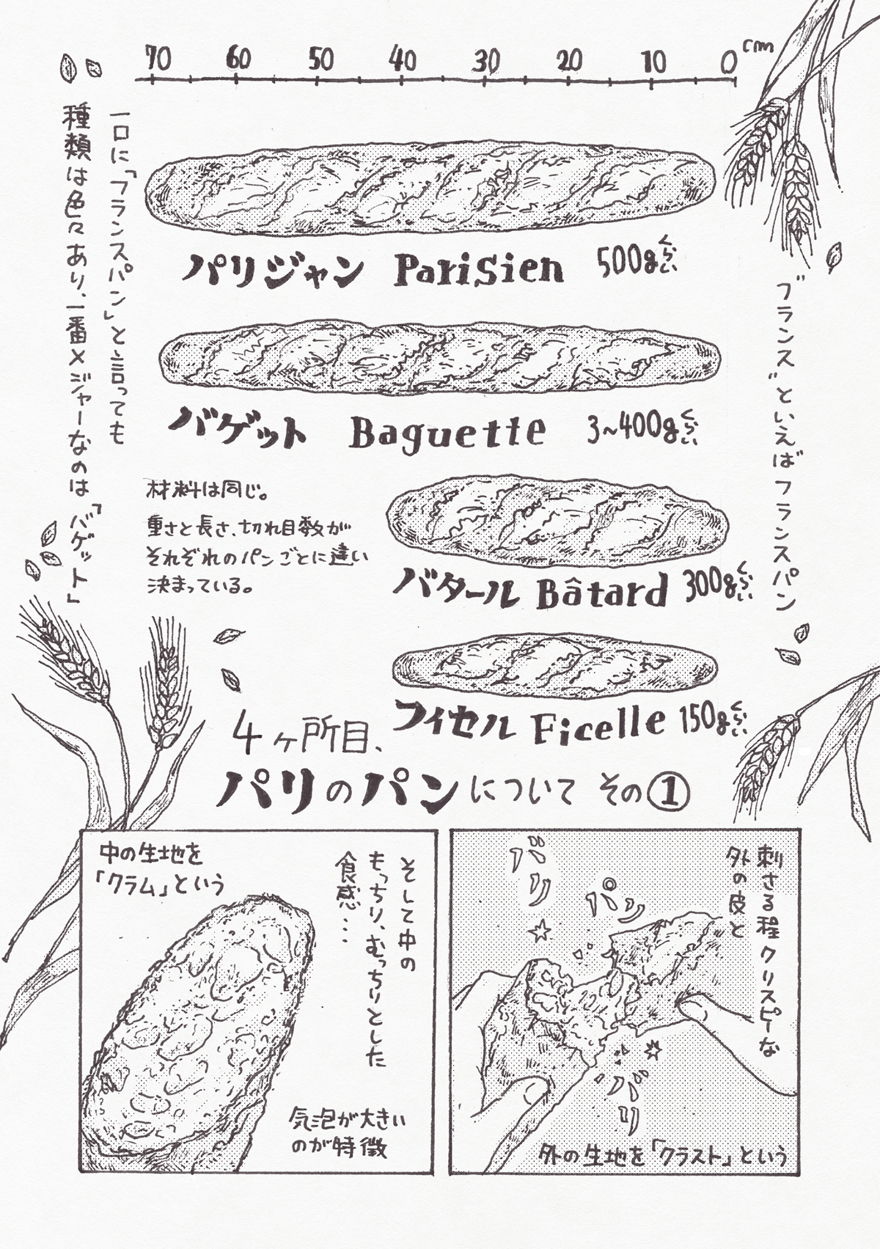 70 60 50 40 30 20 10 0 cm
"フランス"といえばフランスパン
一口に「フランスパン」と言っても
種類は色々あり、一番メジャーなのは「バゲット」
パリジャン Parisien 500gくらい
バゲット Baguette 3~400gくらい
材料は同じ。
重さと長さ、切れ目数が
それぞれのパンごとに違い
決まっている。
バタール Bâtard 300gくらい
フィセル Ficelle 150gくらい
4ヶ所目、
パリのパンについて その①
刺さる程クリスピーな
外の皮と
バリ
パン
バリ
外の生地を「クラスト」という
そして中の
もっちり、むっちりとした
食感…
中の生地を
「クラム」という
気泡が大きい
のが特徴